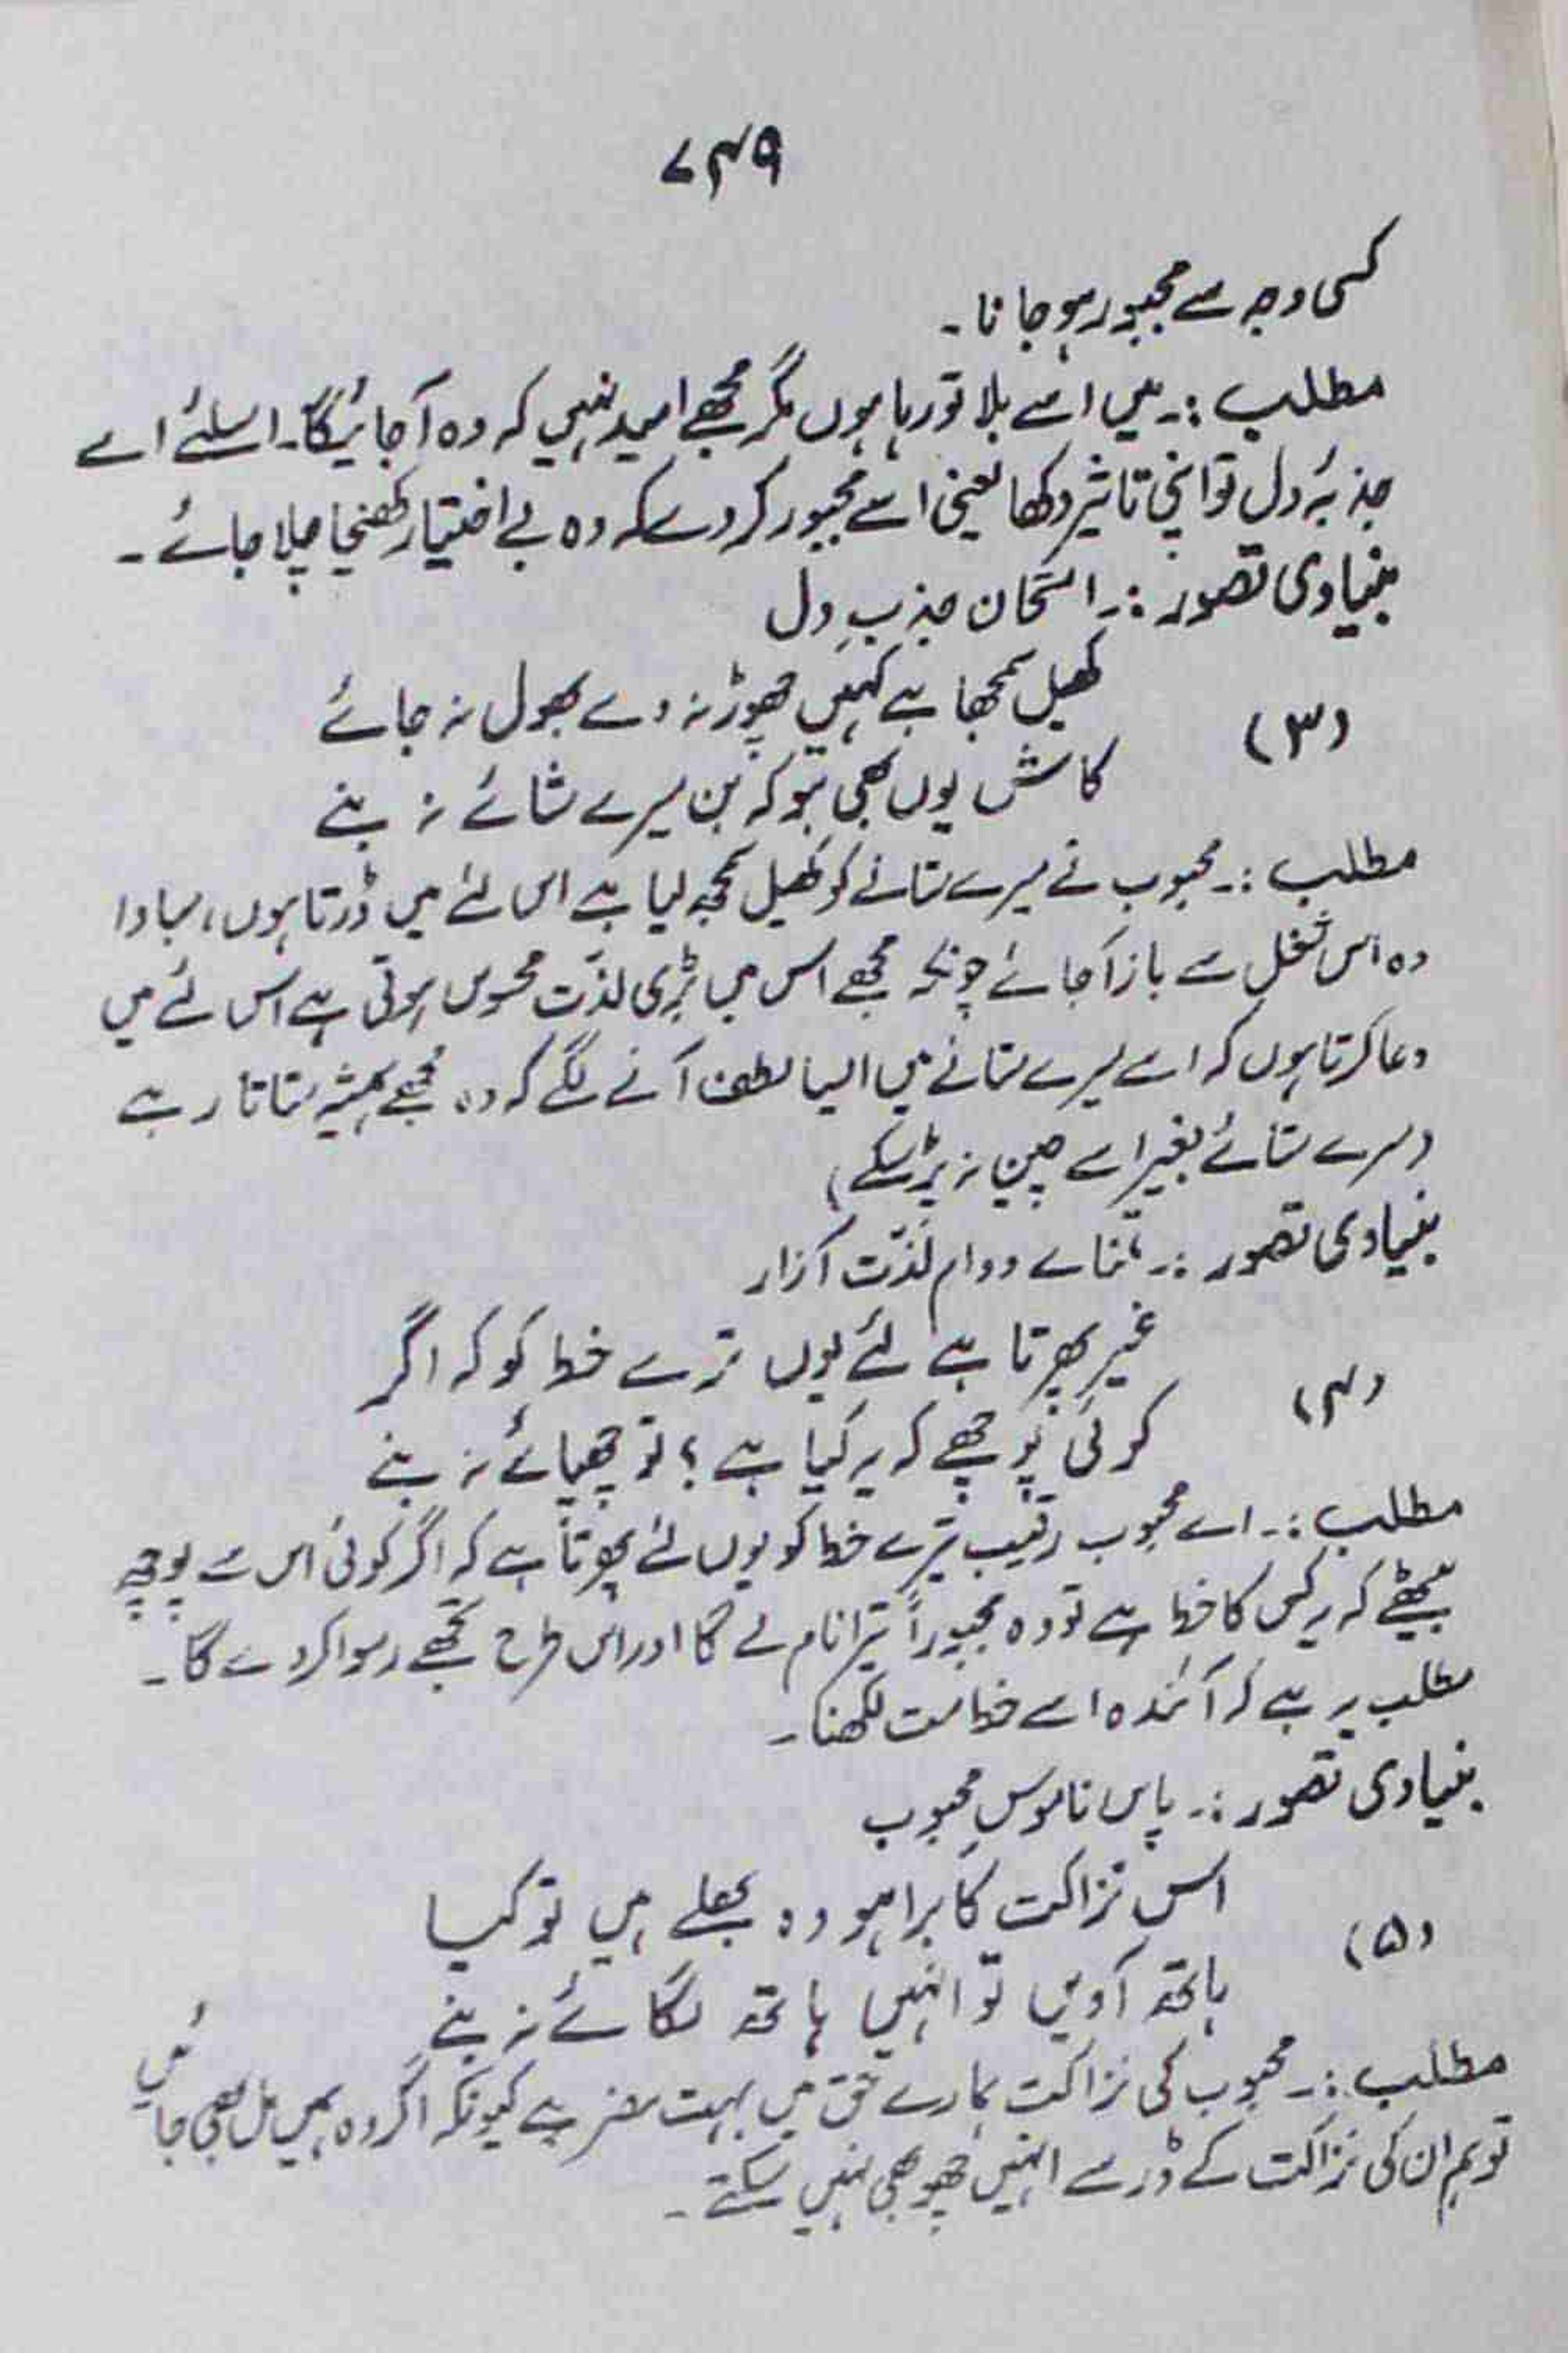 ۷۴۹
کسی وجہ سے مجبور ہو جانا۔
مطلب :۔ میں اسے بلا تو رہا ہوں مگر مجھے امید نہیں کہ وہ آجائیگا۔ اسلئے اے
جذبۂ دل تو اپنی تاثیر دکھا یعنی اسے مجبور کر دے کہ وہ بے اختیار کھنچا چلا جائے۔
بنیادی تصور :۔ امتحان جذبِ دل
(۳) کھیل سمجھا ہے کہیں چھوڑ نہ دے بھول نہ جائے
کاش یوں بھی ہو کہ بن میرے ستائے نہ بنے
مطلب :۔ محبوب نے میرے ستانے کو کھیل سمجھ لیا ہے اس لئے میں ڈرتا ہوں، مبادا
وہ اس شغل سے باز آجائے چونکہ مجھے اس میں بڑی لذّت محسوس ہوتی ہے اس لئے میں
دعا کرتا ہوں کہ اسے میرے ستانے میں ایسا لطف آنے لگے کہ وہ مجھے ہمیشہ ستاتا رہے
(میرے ستائے بغیر اسے چین نہ پڑ سکے)
بنیادی تصور :۔ تمنائے دوام لذّت آزار
(۴) غیر پھرتا ہے لئے یوں ترے خط کو کہ اگر
کوئی پوچھے کہ یہ کیا ہے؟ تو چھپائے نہ بنے
مطلب :۔ اے محبوب رقیب تیرے خط کو یوں لئے پھرتا ہے کہ اگر کوئی اس سے پوچھ
بیٹھے کہ یہ کس کا خط ہے تو وہ مجبوراً تیرا نام لے گا اور اس طرح تجھے رسوا کر دے گا۔
مطلب یہ ہے کہ آئندہ اسے خط مت لکھنا۔
بنیادی تصور :۔ پاس ناموسِ محبوب
(۵) اس نزاکت کا برا ہو وہ بھلے ہیں تو کیا
ہاتھ آویں تو انہیں ہاتھ لگائے نہ بنے
مطلب :۔ محبوب کی نزاکت ہمارے حق میں بہت مضر ہے کیونکہ اگر وہ ہمیں مل بھی جائیں
تو ہم ان کی نزاکت کے ڈر سے انہیں چھو بھی نہیں سکتے۔